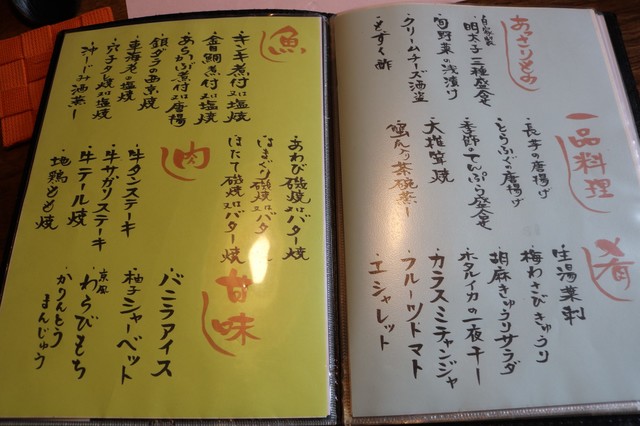 あっさりもの
自家製
・明太子三種盛合せ
・旬野菜の浅漬け
・クリームチーズ酒盗
・もずく酢
一品料理
・長芋の唐揚げ
・とらふぐ唐揚げ
・季節のてんぷら盛合せ
・大椎茸焼
・蟹入り茶碗蒸し
肴
・生湯葉刺
・梅わさびきゅうり
・胡麻きゅうりサラダ
・ホタルイカの一夜干し
・カラスミチャンジャ
・フルーツトマト
・エシャレット
魚
・キンキ煮付又は塩焼
・金目鯛煮付又は塩焼
・あらかぶ煮付又は唐揚
・銀ダラの西京焼
・車海老の塩焼
・穴子タレ焼又は塩焼
・沖しじみ酒蒸し
・あわび磯焼又はバター焼
・はまぐり磯焼又はバター焼
・ほたて磯焼又はバター焼
肉
・牛タンステーキ
・牛サガリステーキ
・牛テール焼
・地鶏もも焼
甘味
・バニラアイス
・柚子シャーベット
・京風わらびもち
・かりんとうまんじゅう